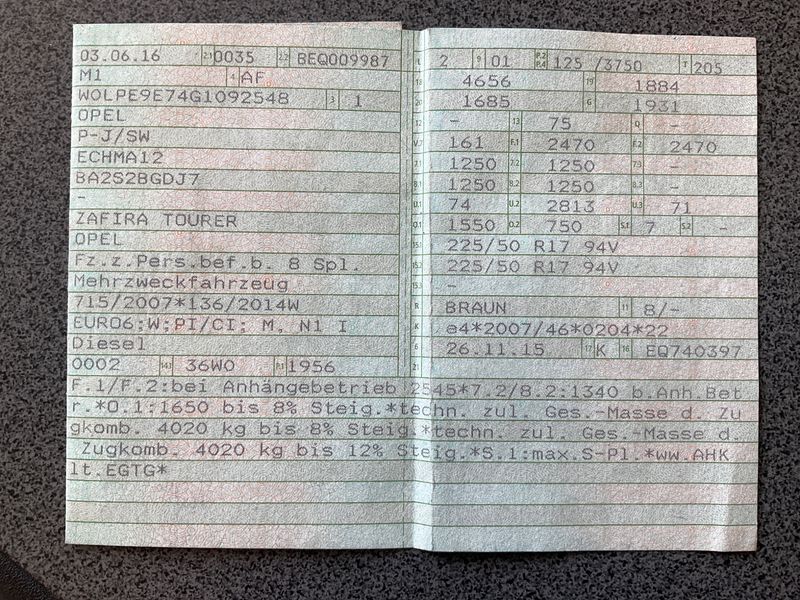 03.06.16 2.1 0035 2.2 BEQ009987
M1 4 AF
W0LPE9E74G1092548 3 1
OPEL
P-J/SW
ECHMA12
BA2S2BGDJ7
-
ZAFIRA TOURER
OPEL
Fz.z.Pers.bef.b. 8 Spl.
Mehrzweckfahrzeug
715/2007*136/2014W
EURO6;W;PI/CI; M, N1 I
Diesel
0002 14.1 36W0 P.1 1956
L 2 9 01 P.2 P.4 125 /3750 T 205
18 4656 19 1884
20 1685 G 1931
12 - 13 75 Q -
V.7 161 F.1 2470 F.2 2470
7.1 1250 7.2 1250 7.3 -
8.1 1250 8.2 1250 8.3 -
U.1 74 U.2 2813 U.3 71
O.1 1550 O.2 750 S.1 7 S.2 -
15.1 225/50 R17 94V
15.2 225/50 R17 94V
15.3 -
R BRAUN 11 8/-
K e4*2007/46*0204*22
6 26.11.15 17 K 16 EQ740397
21
F.1/F.2:bei Anhängebetrieb 2545*7.2/8.2:1340 b.Anh.Bet
r.*O.1:1650 bis 8% Steig.*techn. zul. Ges.-Masse d. Zu
gkomb. 4020 kg bis 8% Steig.*techn. zul. Ges.-Masse d.
Zugkomb. 4020 kg bis 12% Steig.*S.1:max.S-Pl.*ww.AHK
lt.EGTG*